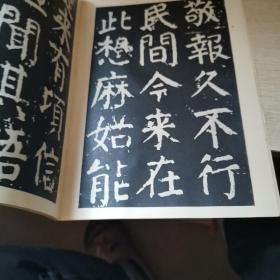 敬報久不行
民間今来在
此想麻姑能
来有頃信
聞其語